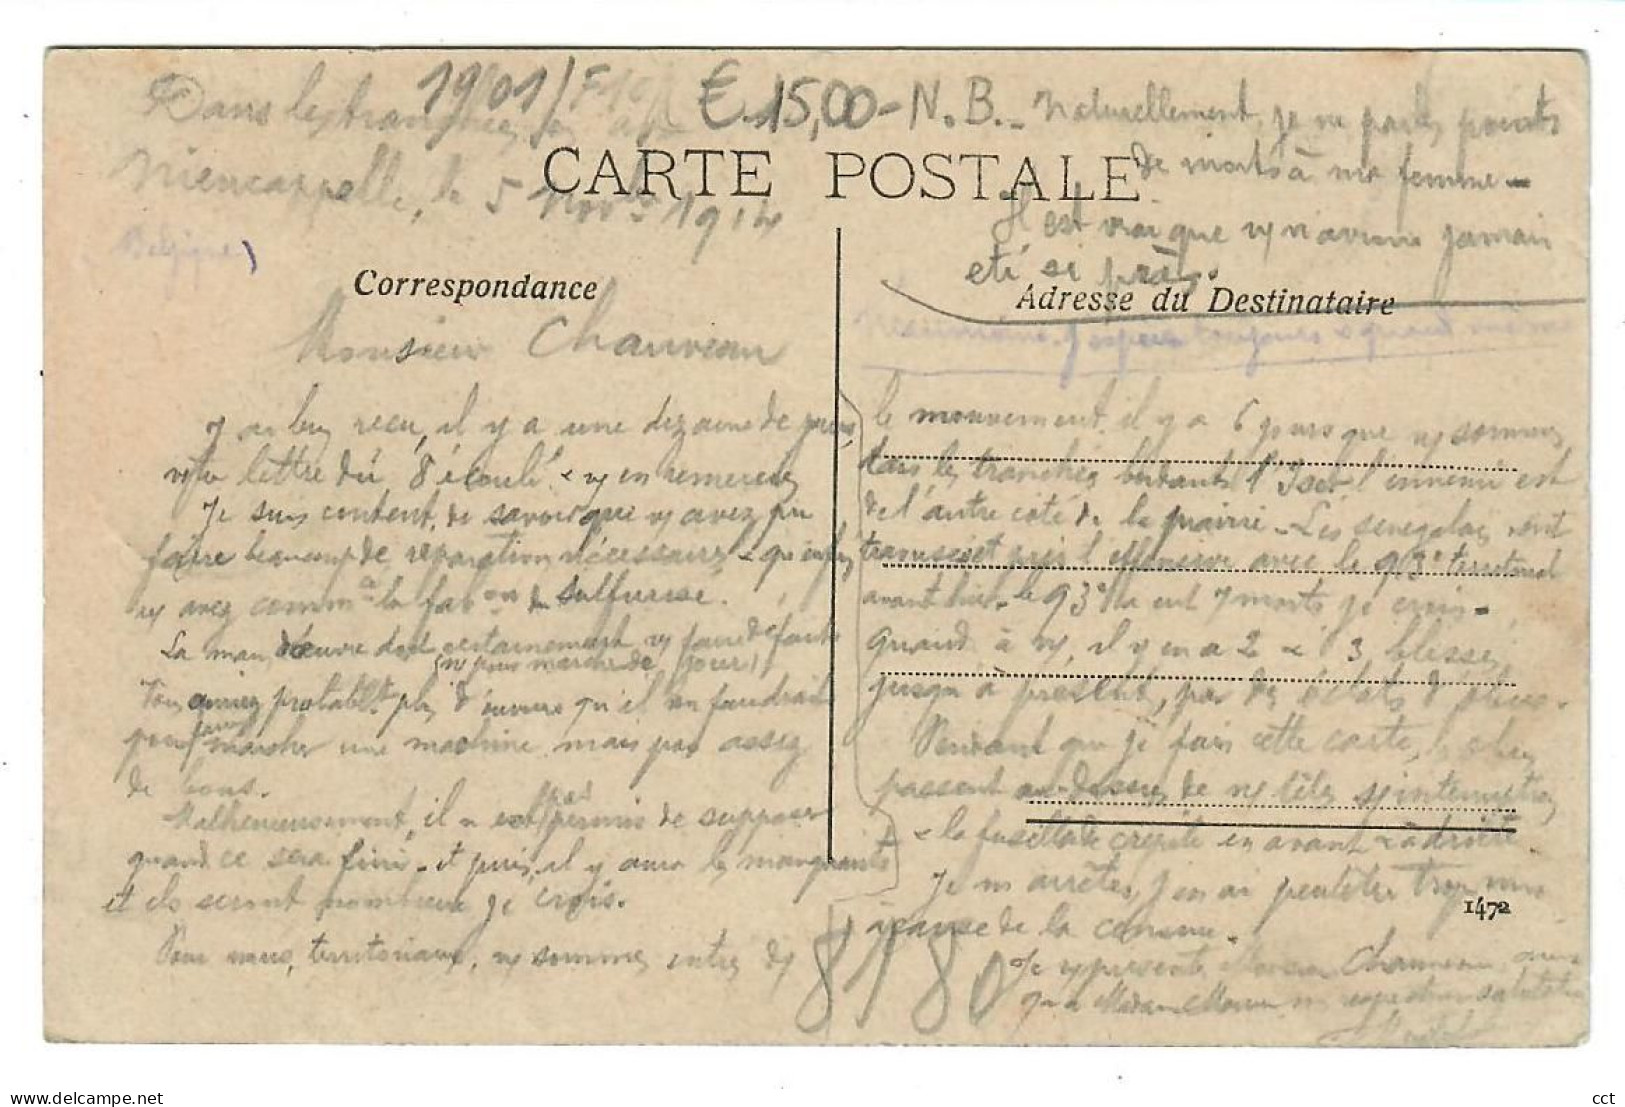 19/01/
€ 15,00
Dans les tranchées
Niencappelle, le 5 Nov 1914
Belgique)
N.B. - Naturellement, je ne parle point
de morts à ma femme -
Il est vrai que ns n'avions jamais
été si près.
CARTE POSTALE
Correspondance
Adresse du Destinataire
Néanmoins j'espère toujours quand même
Monsieur Chauveau
J'ai bien reçu, il y a une dizaine de jours,
votre lettre du 8 écoulé & vs en remercie
Je suis content de savoir que vs avez pu
faire beaucoup de réparation nécessaires &
vs avez comm la fabon de sulfureuse.
La main d'œuvre doit certainement vs faire défaut
(ns pour marche de jour)
Vous auriez probablet plus d'ouvriers qu'il en faudrait
pour faire marcher une machine mais pas assez
de bons.
Malheureusement, il n'est pas permis de supposer
quand ce sera fini - et puis, il y aura les manquants
et ils seront nombreux je crois.
Pour nous, territoriaux, ns sommes entrés ds
le mouvement, il y a 6 jours que ns sommes
dans les tranchées bordant l'Iser l'ennemi est
de l'autre côté de la prairie - Les senegalais ont
pris l'offensive avec le 93e territorial
avant hier - le 93e a eut 7 morts je crois -
quand à ns, il y en a 2 & 3 blessés,
jusqu'à présent, par des éclats d'obus.
Pendant que je fais cette carte, les obus
passent au-dessus de ns têtes
& la fusillade crépite en avant & à droite.
Je m'arrête, j'en ai peut être trop mis
à cause de la censure.
Je vs présente, Monsieur Chauveau, ainsi
qu'à Madame mes respectueuses salutations
1472
8180